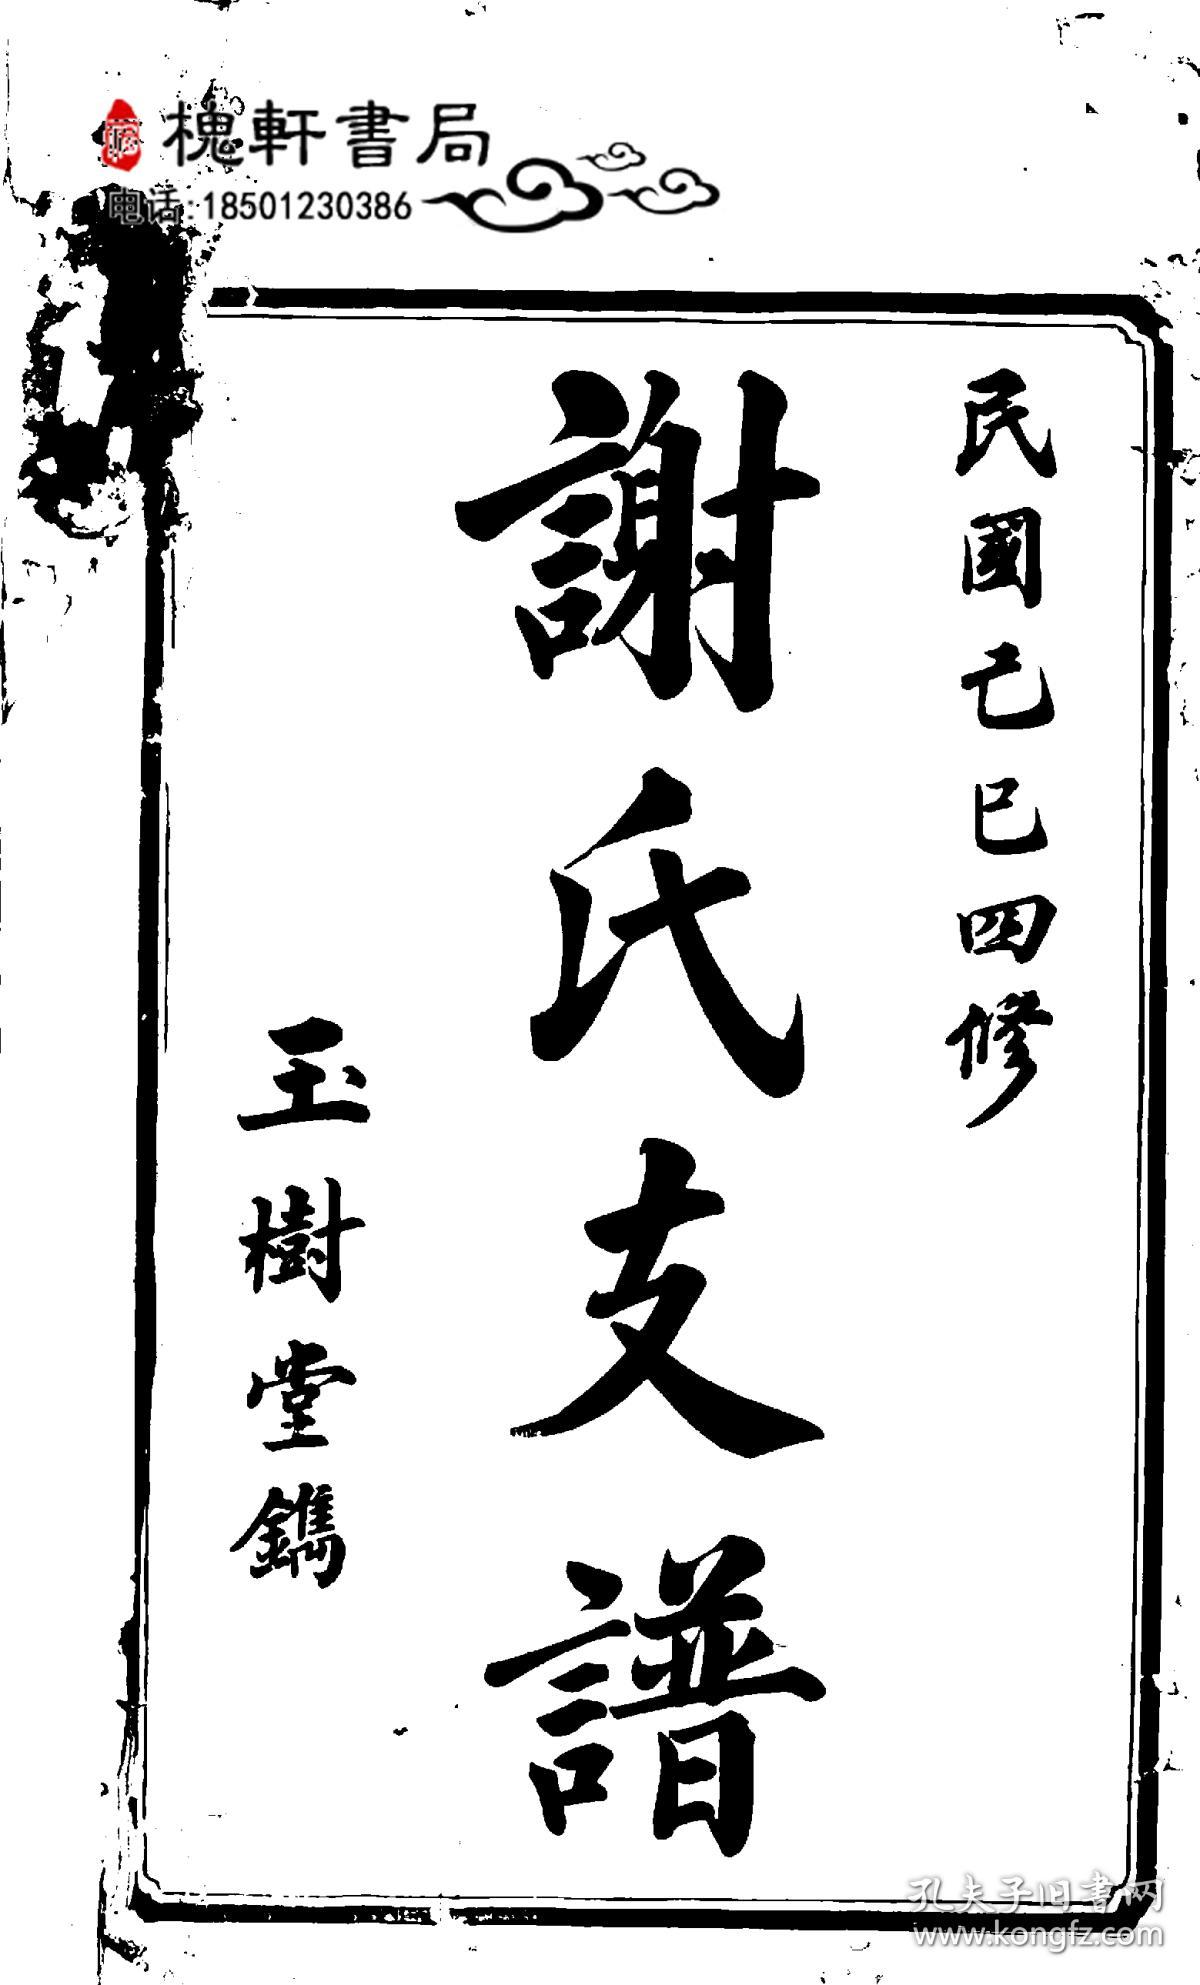 槐軒書局
电话:18501230386
民國己巳四修
謝氏支譜
玉樹堂鐫
孔夫子旧书网
www.kongfz.com